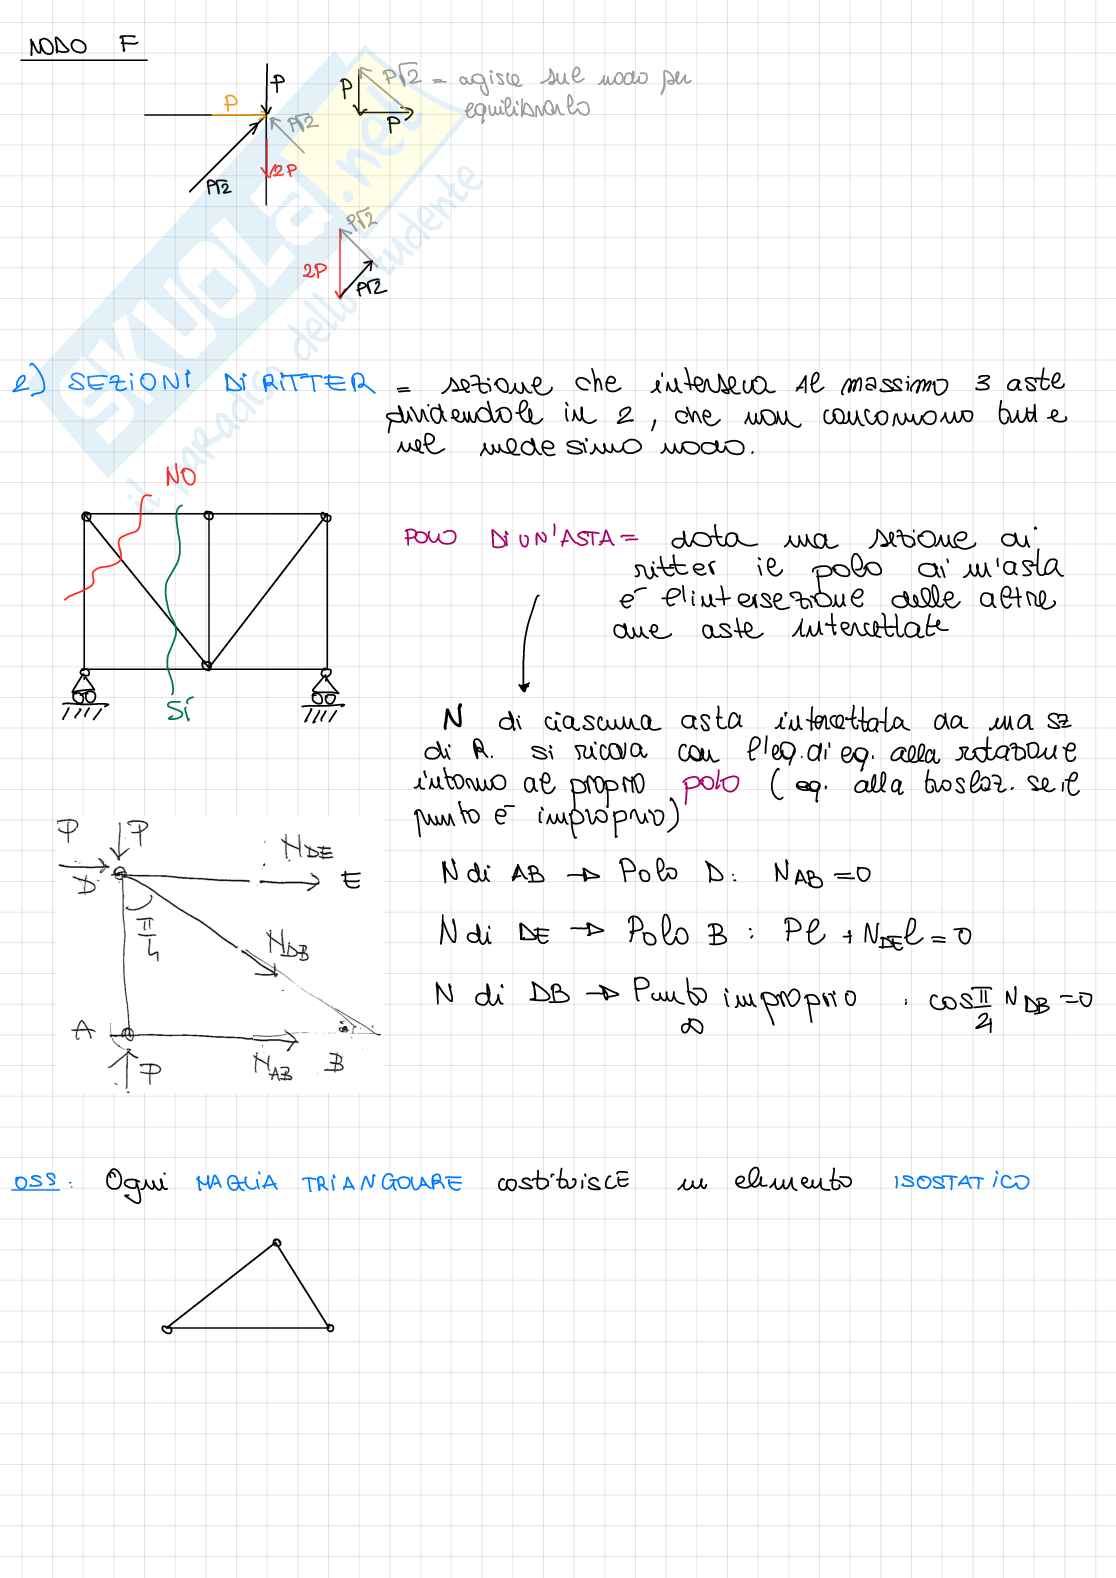 NODO F
P
P
P√2
P√2
2P
P
P
P√2 = agisce sul nodo per
equilibrarlo
P√2
2P
P√2
SKUOLA.net
il paradiso dello studente
2) SEZIONI DI RITTER = sezione che interseca al massimo 3 aste
dividendole in 2, che non concorrono tutte
nel medesimo nodo.
NO
SÍ
POLO DI UN'ASTA = data una sezione di
ritter il polo di un'asta
è l'intersezione delle altre
due aste intercettate
N di ciascuna asta intercettata da una sz
di R. si ricava con l'eq. di eq. alla rotazione
intorno al proprio polo (eq. alla traslaz. se il
punto è improprio)
P
P
N DE
D
E
π/4
N DB
A
N AB
B
P
N di AB → Polo D: N AB = 0
N di DE → Polo B: Pl + N DE l = 0
N di DB → Punto improprio . cos π/4 N DB = 0
∞
OSS: Ogni MAGLIA TRIANGOLARE costituisce un elemento ISOSTATICO